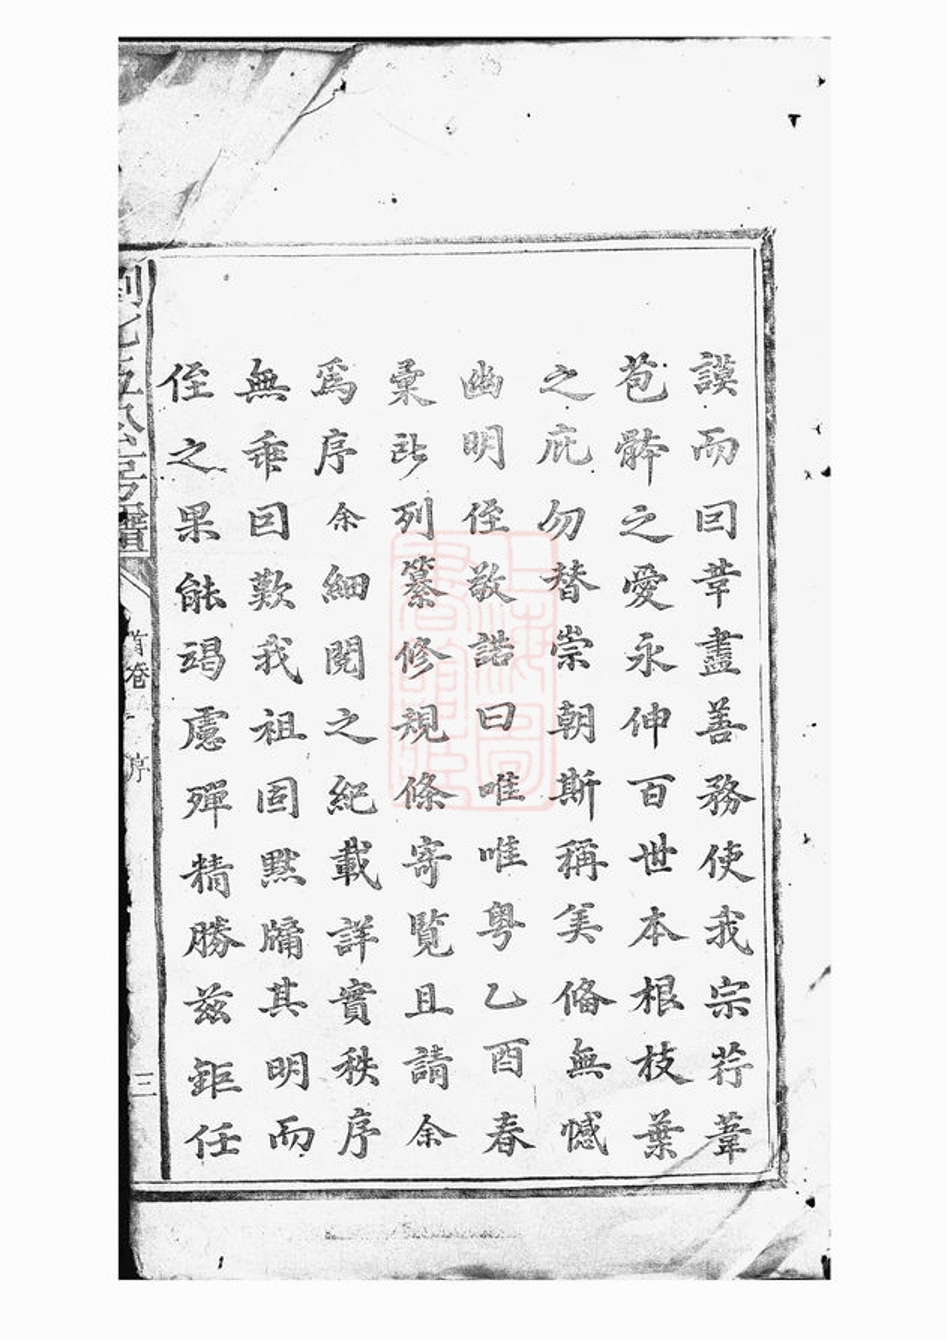 謨而曰莘盡善務使我宗荇葦
苞骵之愛永伸百世本根枝葉
之庇勿替崇朝斯稱美俻無憾
幽明侄敬誥曰唯唯粤乙酉春
彙列纂修規條寄覧且請余
爲序余細閱之紀載詳實秩序
無乖因歎我祖固默牗其明而
侄之果能竭慮殫精勝兹鉅任
公房譜
首卷
序
三